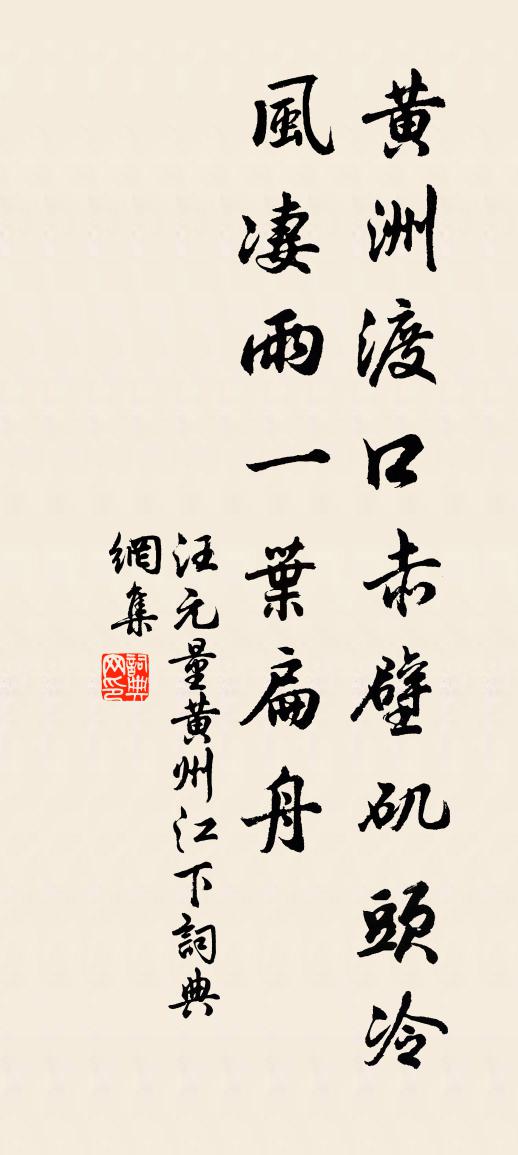 黄洲渡口赤壁矶頭冷
風凄雨一葉扁舟
汪元量黄州江下詞典
網集
詞典网印